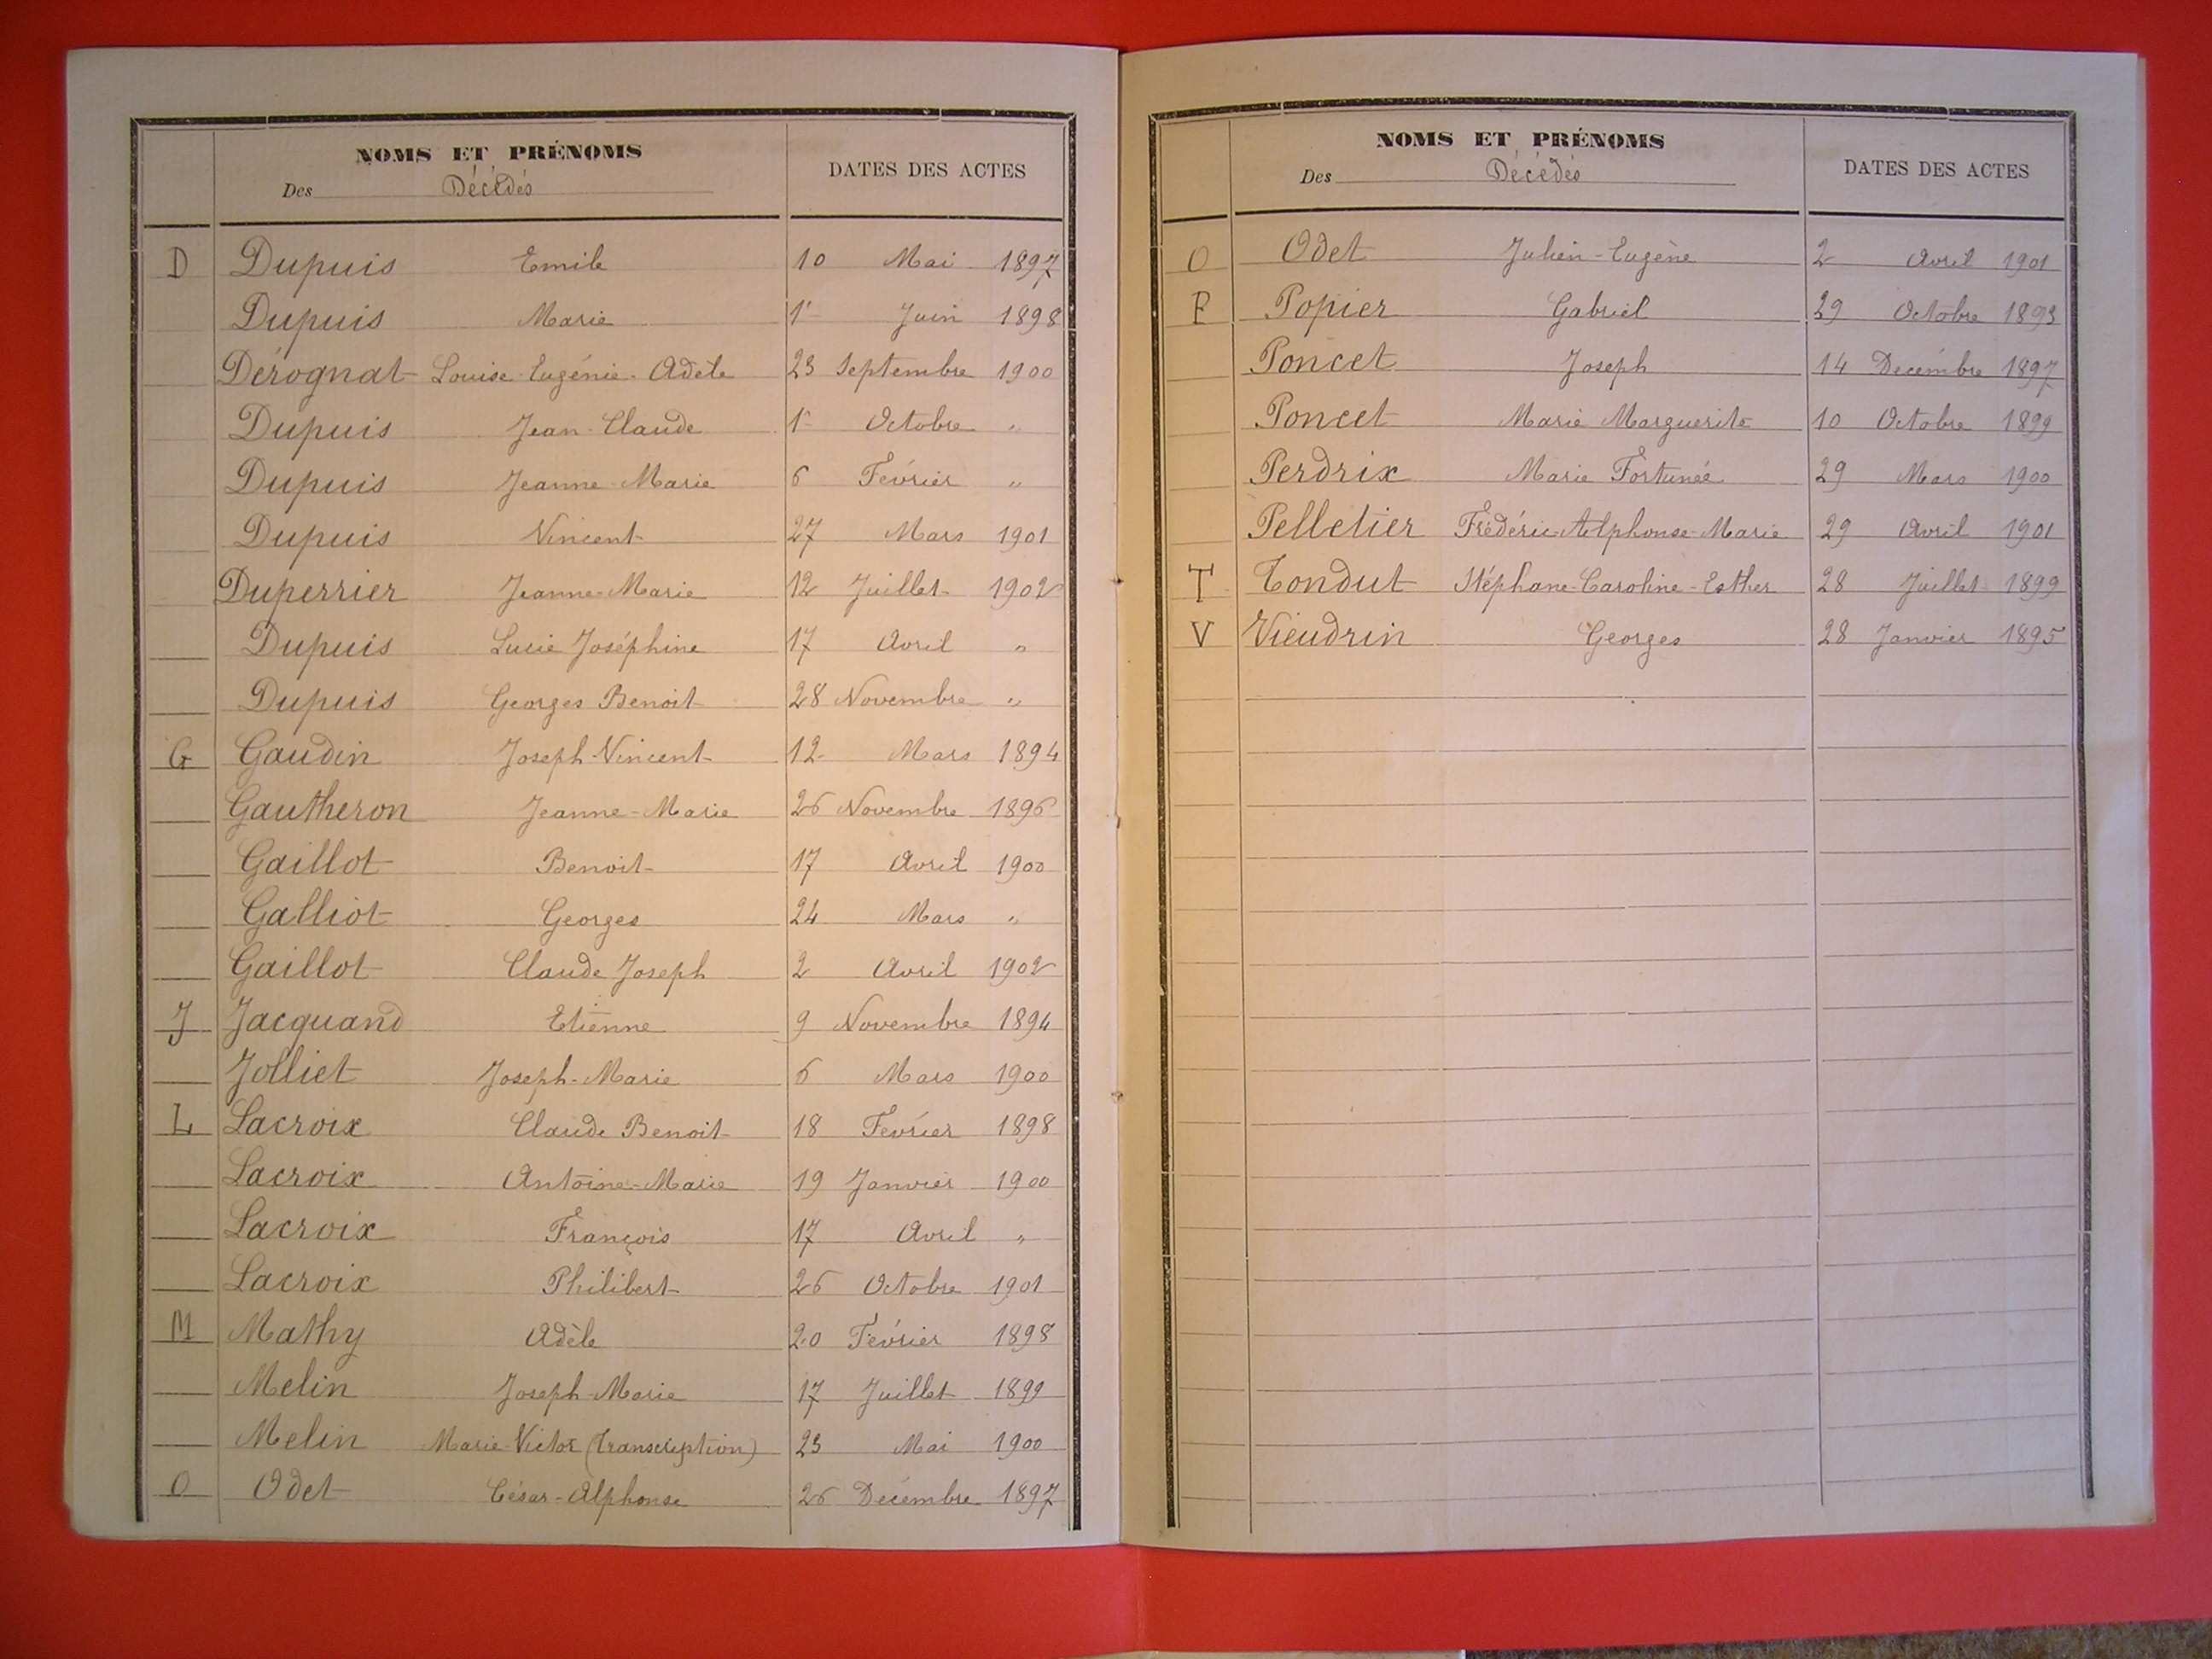 NOMS ET PRÉNOMS
Des Décédés
DATES DES ACTES
D Dupuis Emile 10 Mai 1897
Dupuis Marie 1r Juin 1898
Dérognat Louise-Eugénie-Adèle 23 Septembre 1900
Dupuis Jean-Claude 1r Octobre "
Dupuis Jeanne-Marie 6 Février "
Dupuis Vincent 27 Mars 1901
Duperrier Jeanne-Marie 12 Juillet 1902
Dupuis Lucie Joséphine 17 Avril "
Dupuis Georges Benoit 28 Novembre "
G Gaudin Joseph-Vincent 12 Mars 1894
Gautheron Jeanne-Marie 26 Novembre 1896
Gaillot Benoit 17 Avril 1900
Galliot Georges 24 Mars "
Gaillot Claude Joseph 2 Avril 1902
J Jacquand Etienne 9 Novembre 1894
Jolliet Joseph-Marie 6 Mars 1900
L Lacroix Claude Benoit 18 Février 1898
Lacroix Antoine-Marie 19 Janvier 1900
Lacroix François 17 Avril "
Lacroix Philibert 26 Octobre 1901
M Mathy Adèle 20 Février 1898
Melin Joseph-Marie 17 Juillet 1899
Melin Marie-Victor (Transcription) 23 Mai 1900
O Odet César-Alphonse 26 Décembre 1897
NOMS ET PRÉNOMS
Des Décédés
DATES DES ACTES
O Odet Julien-Eugène 2 Avril 1901
P Popier Gabriel 29 Octobre 1893
Poncet Joseph 14 Décembre 1897
Poncet Marie Marguerite 10 Octobre 1899
Perdrix Marie Fortunée 29 Mars 1900
Pelletier Frédéric-Alphonse-Marie 29 Avril 1901
T Tondut Stéphane-Caroline-Esther 28 Juillet 1899
V Vieudrin Georges 28 Janvier 1895